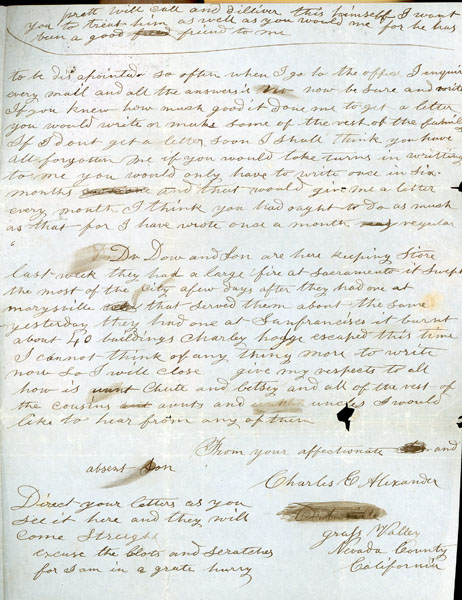 pratt will call and dilliver this himself I want
you to treat him as well as you would me for he has
been a good friend to me
to be disapointed so often when I go to the office I enquire
every mail and all the answer is no now be sure and write
If you knew how much good it done me to get a letter
you would write or make some of the rest of the family
If I dont get a letter soon I shall think you have
all forgotten me if you would take turns in writting
to me you would only have to write once in six
months and that would give me a letter
every month I think you had ought to do as much
as that for I have wrote once a month regular
Dr Dow and Son are here keeping Store
last week they had a large fire at Sacramento it swept
the most of the City a few days after they had one at
marysville that served them about the same
yesterday they had one at Sanfrancisco it burnt
about 40 buildings Charley hodge escaped this time
I cannot think of any thing more to write
now So I will close give my respects to all
how is Chute and betsey and all of the rest of
the cousins aunts and uncles I would
like to hear from any of them
From your affectionate and
absent Son
Charles E Alexander
Direct your letters as you
see it here and they will
come Streight
excuse the blots and scratches
for I am in a grate hurry
grass Valley
Nevada County
California